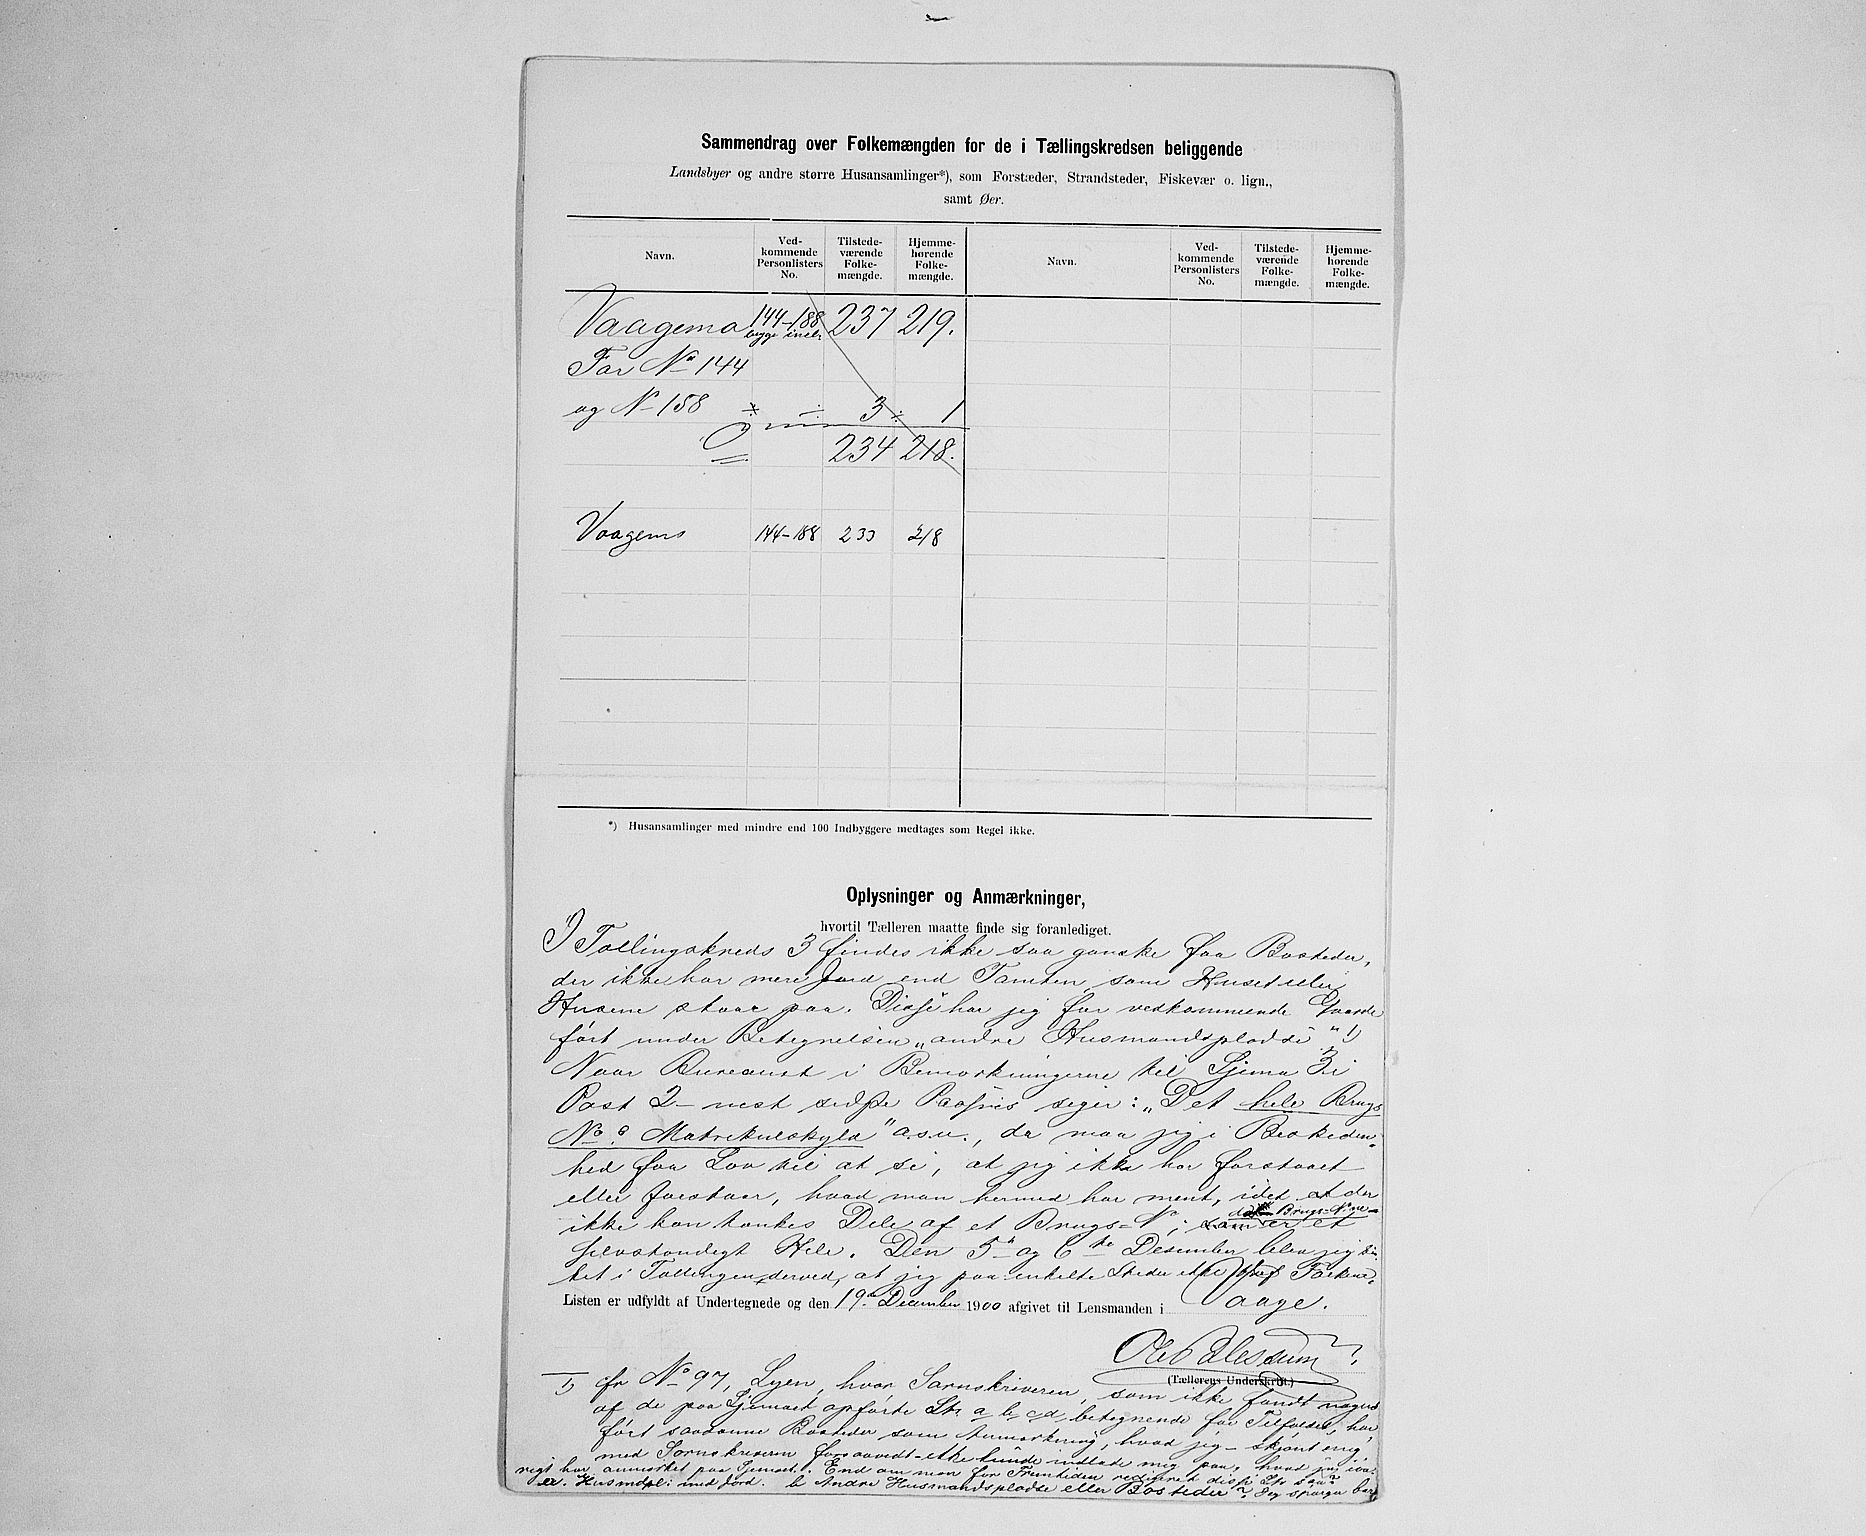 Sammendrag over Folkemængden for de i Tællingskredsen beliggende
Landsbyer og andre større Husansamlinger*), som Forstæder, Strandsteder, Fiskevær o. lign.,
samt Øer.
Navn. Ved-kommende Personlisters No. Tilstede-værende Folke-mængde. Hjemme-hørende Folke-mængde. Navn. Ved-kommende Personlisters No. Tilstede-værende Folke-mængde. Hjemme-hørende Folke-mængde.
Vaagemo 144-188 237 219.
begge incl.
For No 144
og No 158 ÷ 3 ÷ 1
234 218.
Vaagemo 144-188 233 218
*) Husansamlinger med mindre end 100 Indbyggere medtages som Regel ikke.
Oplysninger og Anmærkninger,
hvortil Tælleren maatte finde sig foranlediget.
I Tællingskreds 3 findes ikke saa ganske faa Bosteder,
der ikke har mere Jord end Tomten, som Huset eller
Husene staar paa. Disse har jeg for vedkommende Gaarde
ført under Betegnelsen „andre Husmandspladse" 1)
Naar Bureauet i Bemærkningerne til Skjema 3 i
Post 2 – næst sidste Passus siger: „Det hele Brugs
No.s Matrikulskyld" o.s.v., da maa jeg i Beskeden-
hed faa Lov til at si, at jeg ikke har forstaaet
eller forstaar, hvad man hermed har ment, idet at der
ikke kan tænkes Dele af et Brugs-No; er et
det Brugs-No
selvstændigt Hele. Den 5te og 6te Desember blev jeg
ket i Tællingen derved, at jeg paa enkelte Steder ikke traf Folkene.
Listen er udfyldt af Undertegnede og den 19de December 1900 afgivet til Lensmanden i Vaage.
(Tællerens Underskrift.)
1) fr No 97, hvor Sorenskriveren, som ikke fandt nogen
af de paa Skjemaet opførte Ltr. a b c d betegnende for Tilfældet, har
ført saadanne Bosteder som Anmærkning, hvad jeg – skjønt enig
med Sorenskriveren forsaavidt – ikke kunde indlade mig paa, hvad jeg
har anmerket paa Skjemaet. End om man for Fremtiden redigeret disse Ltr.
Husmdpl. med Jord. b Andre Husmandspladse eller Bosteder? Jeg spørger bare